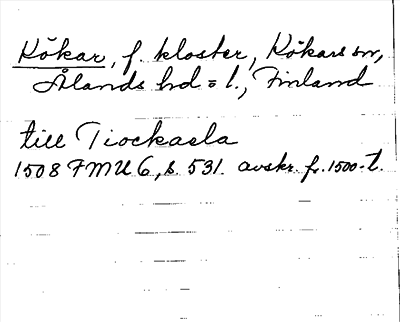 Kökar, f. kloster, Kökars sn,
Ålands hd o l., Finland
till Tiockasla
1508 FMU 6, s. 531. avskr. fr. 1500-t.